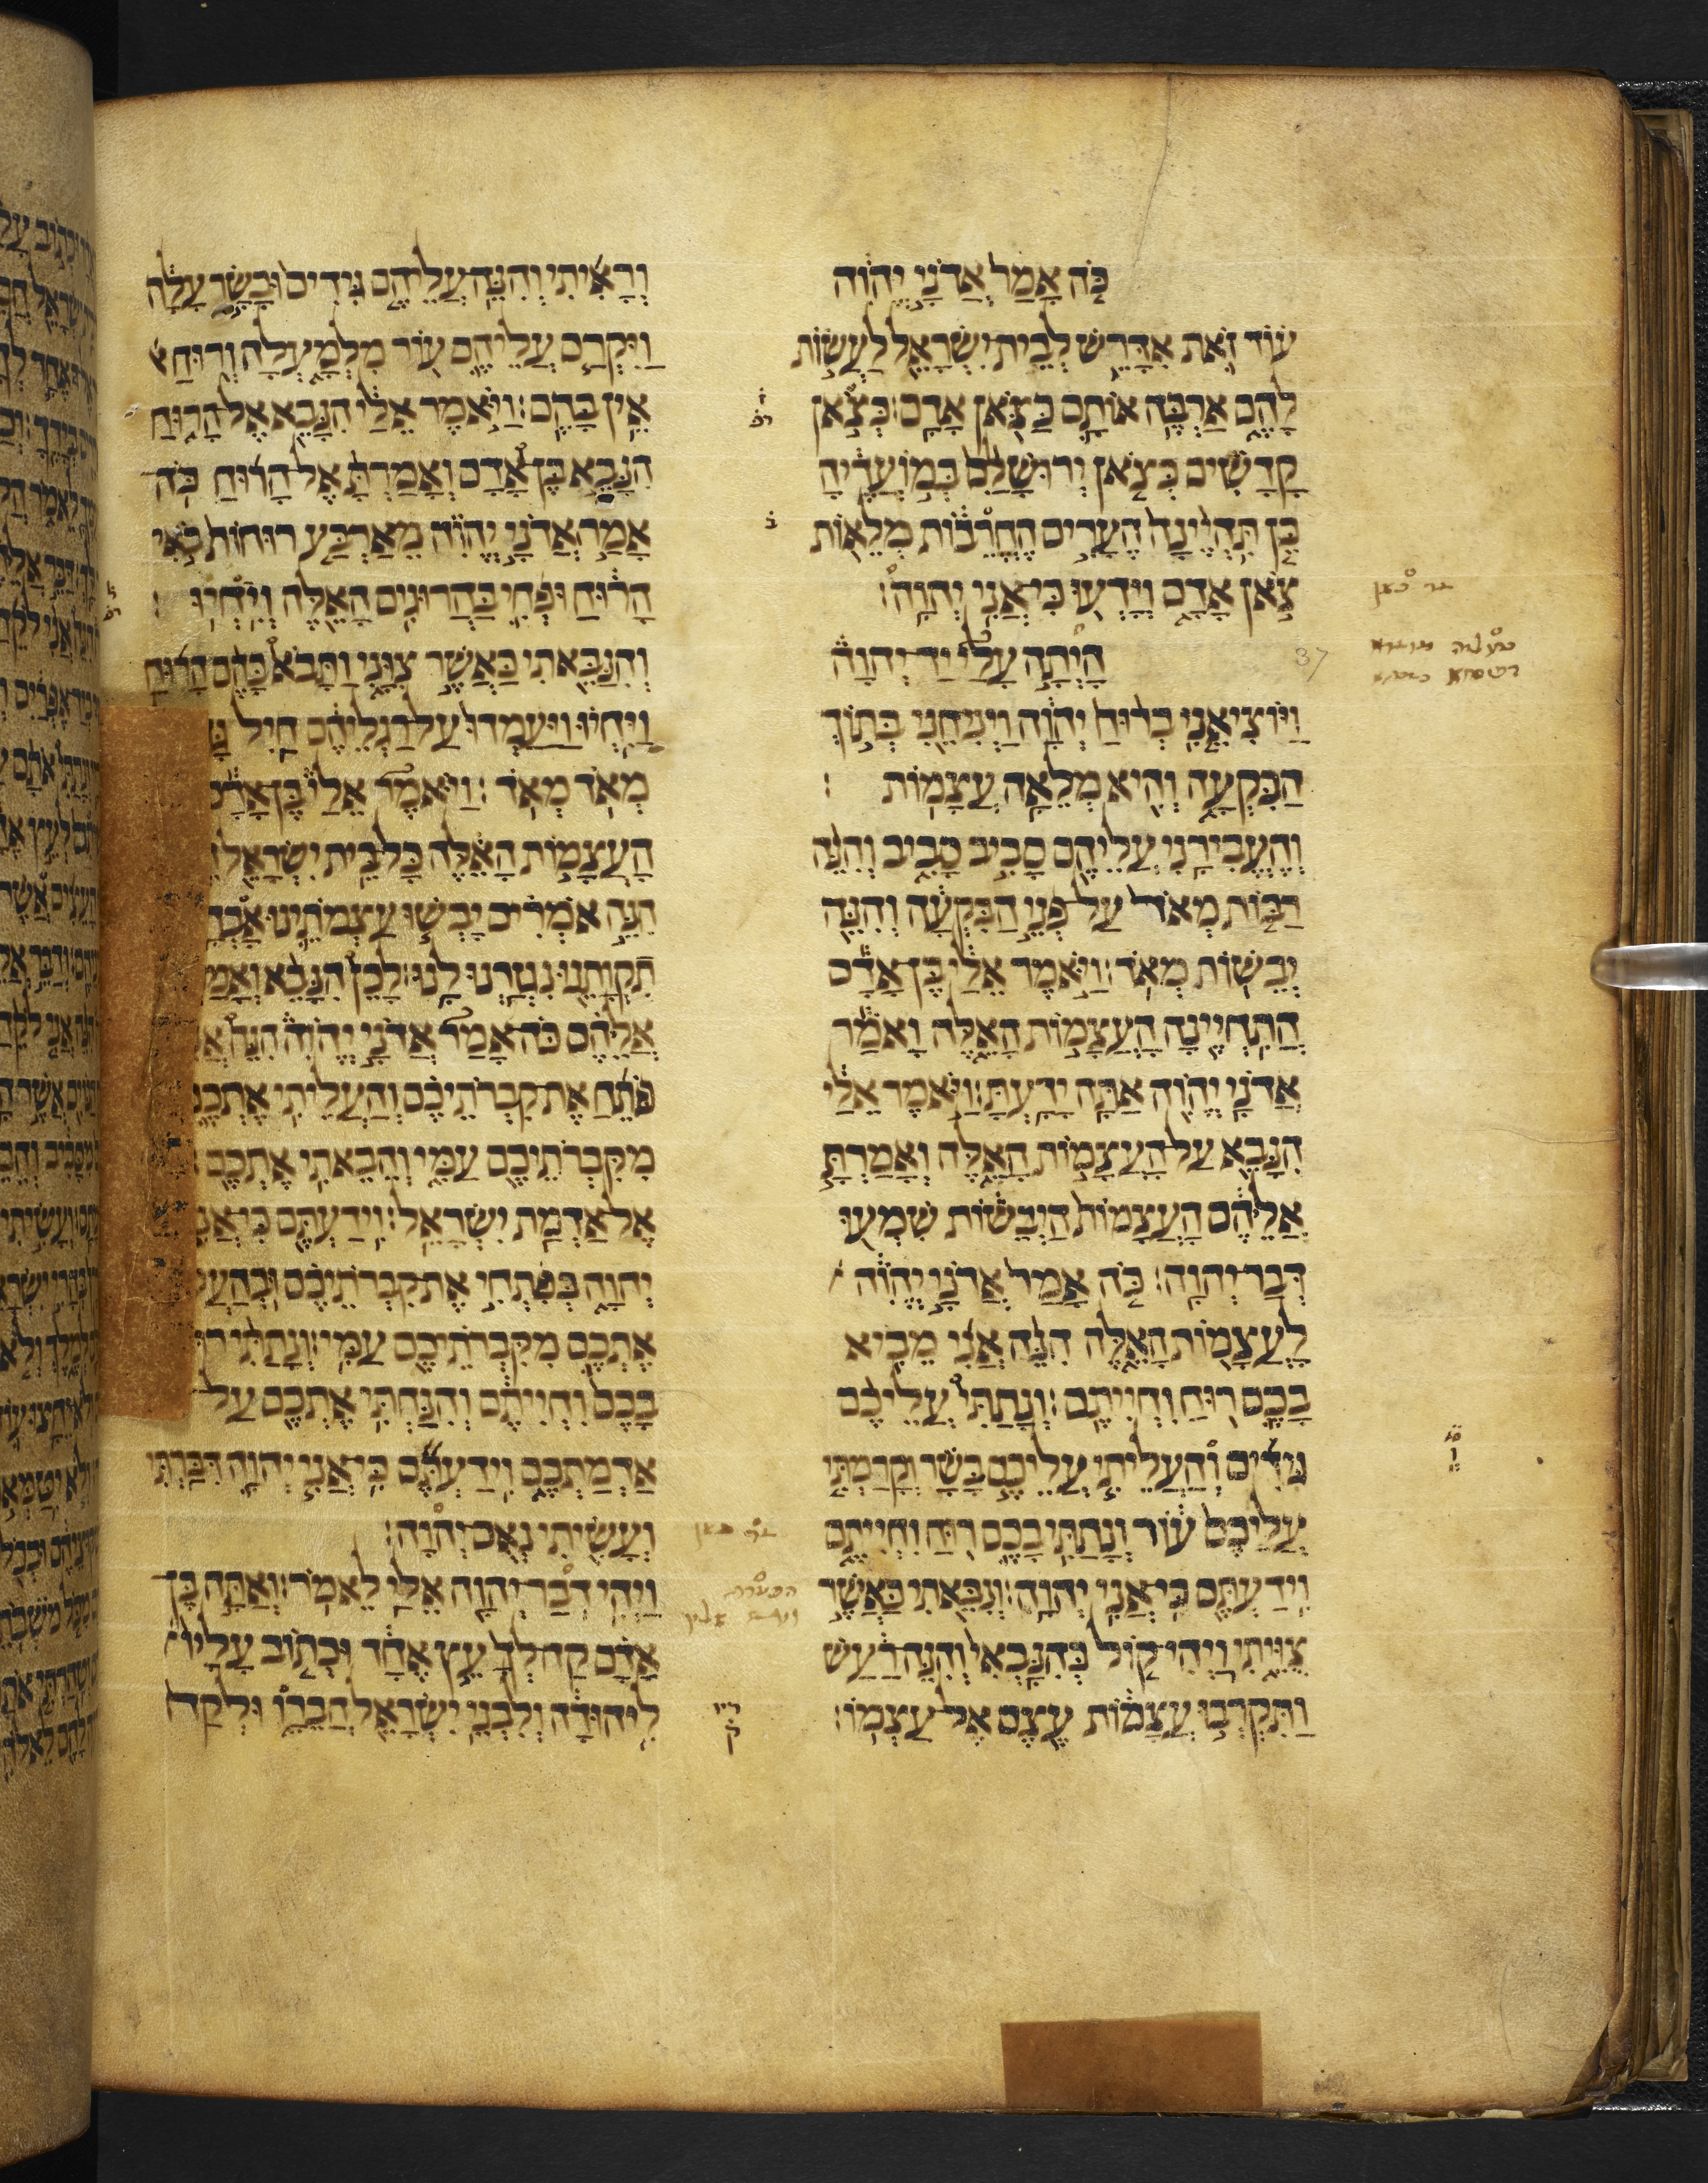 כֹּה אָמַר אֲדֹנָי יְהוִֹה
עוֹד זֹאת אִדָּרֵשׁ לְבֵית יִשְׂרָאֵל לַעֲשׂוֹת
לָהֶם אַרְבֶּה אוֹתָם כַּצֹּאן אָדָם׃ כְּצֹאן
קָדָשִׁים כְּצֹאן יְרוּשָׁלִַם בְּמוֹעֲדֶיהָ
כֵּן תִּהְיֶינָה הֶעָרִים הֶחֳרֵבוֹת מְלֵאוֹת
צֹאן אָדָם וְיָדְעוּ כִּי אֲנִי יְהוָה׃
37
הָיְתָה עָלַי יַד יְהוָה
וַיּוֹצִיאֵנִי בְרוּחַ יְהוָה וַיְנִיחֵנִי בְּתוֹךְ
הַבִּקְעָה וְהִיא מְלֵאָה עֲצָמוֹת׃
וְהֶעֱבִירַנִי עֲלֵיהֶם סָבִיב סָבִיב וְהִנֵּה
רַבּוֹת מְאֹד עַל פְּנֵי הַבִּקְעָה וְהִנֵּה
יְבֵשׁוֹת מְאֹד׃ וַיֹּאמֶר אֵלַי בֶּן אָדָם
הֲתִחְיֶינָה הָעֲצָמוֹת הָאֵלֶּה וָאֹמַר
אֲדֹנָי יְהוִֹה אַתָּה יָדָעְתָּ׃ וַיֹּאמֶר אֵלַי
הִנָּבֵא עַל הָעֲצָמוֹת הָאֵלֶּה וְאָמַרְתָּ
אֲלֵיהֶם הָעֲצָמוֹת הַיְבֵשׁוֹת שִׁמְעוּ
דְּבַר יְהוָה׃ כֹּה אָמַר אֲדֹנָי יְהוִֹה
לָעֲצָמוֹת הָאֵלֶּה הִנֵּה אֲנִי מֵבִיא
בָכֶם רוּחַ וִחְיִיתֶם׃ וְנָתַתִּי עֲלֵיכֶם
גִּידִים וְהַעֲלֵיתִי עֲלֵיכֶם בָּשָׂר וְקָרַמְתִּי
עֲלֵיכֶם עוֹר וְנָתַתִּי בָכֶם רוּחַ וִחְיִיתֶם
וִידַעְתֶּם כִּי אֲנִי יְהוָה׃ וְנִבֵּאתִי כַּאֲשֶׁר
צֻוֵּיתִי וַיְהִי קוֹל כְּהִנָּבְאִי וְהִנֵּה רַעַשׁ
וַתִּקְרְבוּ עֲצָמוֹת עֶצֶם אֶל עַצְמוֹ׃
וְרָאִיתִי וְהִנֵּה עֲלֵיהֶם גִּידִים וּבָשָׂר עָלָה
וַיִּקְרַם עֲלֵיהֶם עוֹר מִלְמָעְלָה וְרוּחַ
אֵין בָּהֶם׃ וַיֹּאמֶר אֵלַי הִנָּבֵא אֶל הָרוּחַ
הִנָּבֵא בֶן אָדָם וְאָמַרְתָּ אֶל הָרוּחַ כֹּה
אָמַר אֲדֹנָי יְהוִֹה מֵאַרְבַּע רוּחוֹת בֹּאִי
הָרוּחַ וּפְחִי בַּהֲרוּגִים הָאֵלֶּה וְיִחְיוּ׃
וְהִנַּבֵּאתִי כַּאֲשֶׁר צִוָּנִי וַתָּבֹא בָהֶם הָרוּחַ
וַיִּחְיוּ וַיַּעַמְדוּ עַל רַגְלֵיהֶם חַיִל
מְאֹד מְאֹד׃ וַיֹּאמֶר אֵלַי בֶּן אָדָם
הָעֲצָמוֹת הָאֵלֶּה כָּל בֵּית יִשְׂרָאֵל
הִנֵּה אֹמְרִים יָבְשׁוּ עַצְמוֹתֵינוּ
תִקְוָתֵנוּ נִגְזַרְנוּ לָנוּ׃ לָכֵן הִנָּבֵא
אֲלֵיהֶם כֹּה אָמַר אֲדֹנָי יְהוִֹה הִנֵּה
פֹתֵחַ אֶת קִבְרֹתֵיכֶם וְהַעֲלֵיתִי אֶתְכֶם
מִקִּבְרֹתֵיכֶם עַמִּי וְהֵבֵאתִי אֶתְכֶם
אֶל אַדְמַת יִשְׂרָאֵל׃ וִידַעְתֶּם כִּי אֲנִי
יְהוָה בְּפִתְחִי אֶת קִבְרֹתֵיכֶם
אֶתְכֶם מִקִּבְרֹתֵיכֶם עַמִּי׃ וְנָתַתִּי
בָכֶם וִחְיִיתֶם וְהִנַּחְתִּי אֶתְכֶם עַל
אַדְמַתְכֶם וִידַעְתֶּם כִּי אֲנִי יְהוָה דִּבַּרְתִּי
וְעָשִׂיתִי נְאֻם יְהוָה׃
וַיְהִי דְבַר יְהוָה אֵלַי לֵאמֹר׃ וְאַתָּה בֶן
אָדָם קַח לְךָ עֵץ אֶחָד וּכְתוֹב עָלָיו
לִיהוּדָה וְלִבְנֵי יִשְׂרָאֵל חֲבֵרָו וּלְקַח